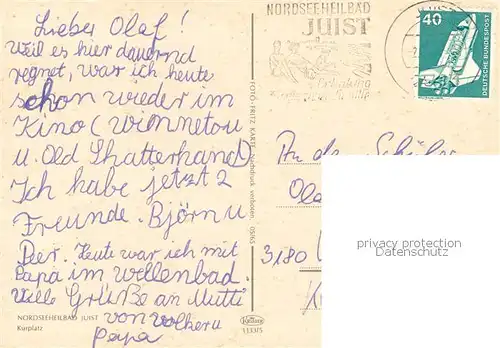 Lieber Olaf!
Weil es hier dauernd
regnet, war ich heute
schon wieder im
Kino (Winnetou
u. Old Shatterhand)
Ich habe jetzt 2
Freunde. Björn u
Peer. Heute war ich mit
Papa im wellenbad.
Viele Grüße an Mutti
von Volker u
Papa
NORDSEEHEILBAD JUIST
Kurplatz
FOTO-FRITZ KARTE, Nachdruck verboten
113375
NORDSEEHEILBAD
JUIST
JUIST
40
DEUTSCHE BUNDESPOST
An den Schüler
3180
privacy protection
Datenschutz